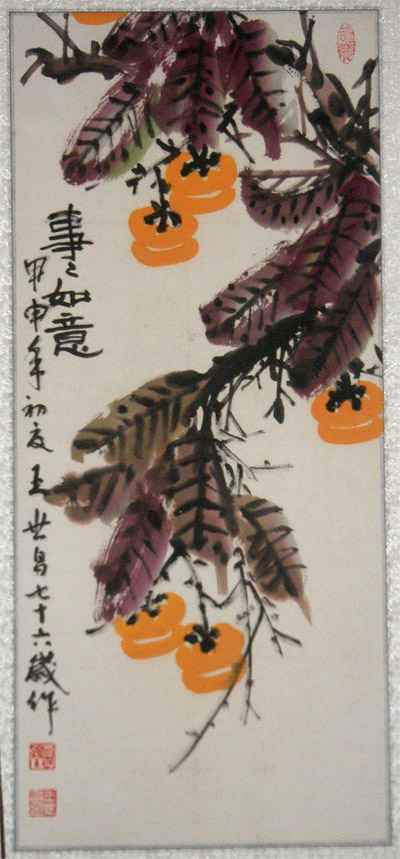 事々如意
甲申年初夏王世昌七十六歲作